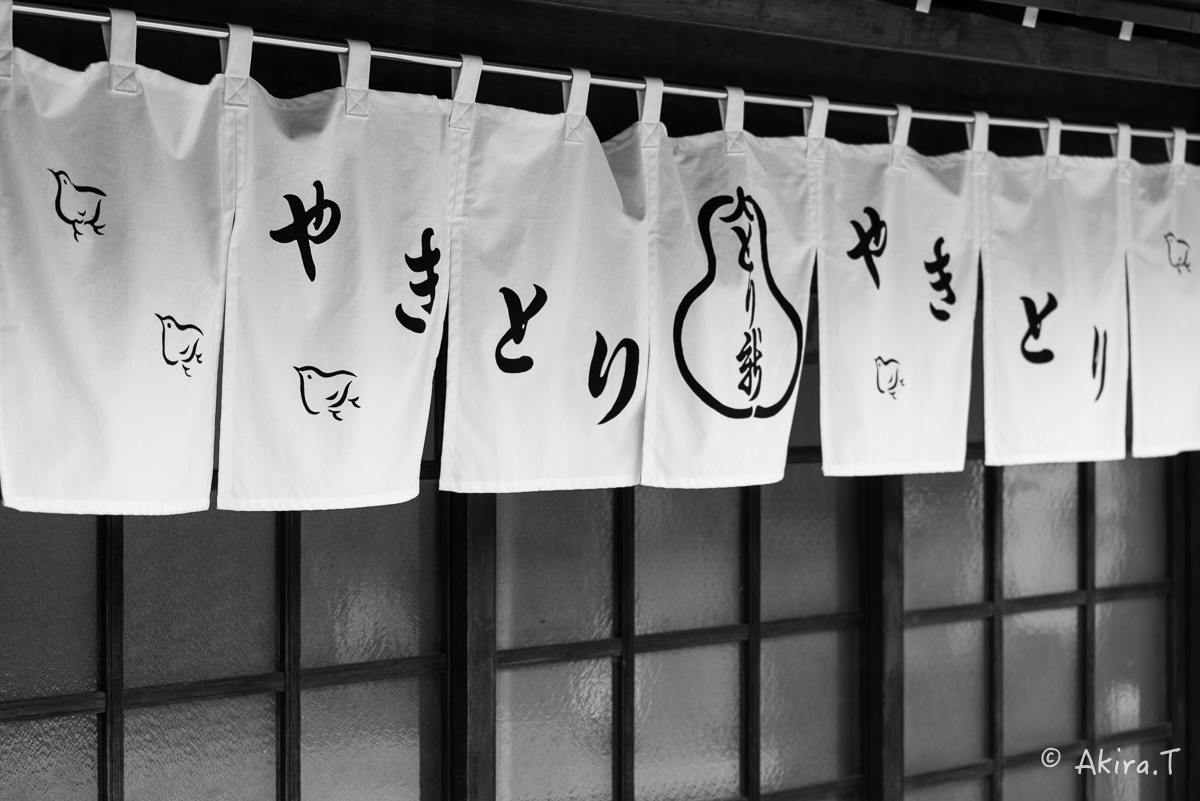 やきとり
とり新
やきとり
© Akira.T